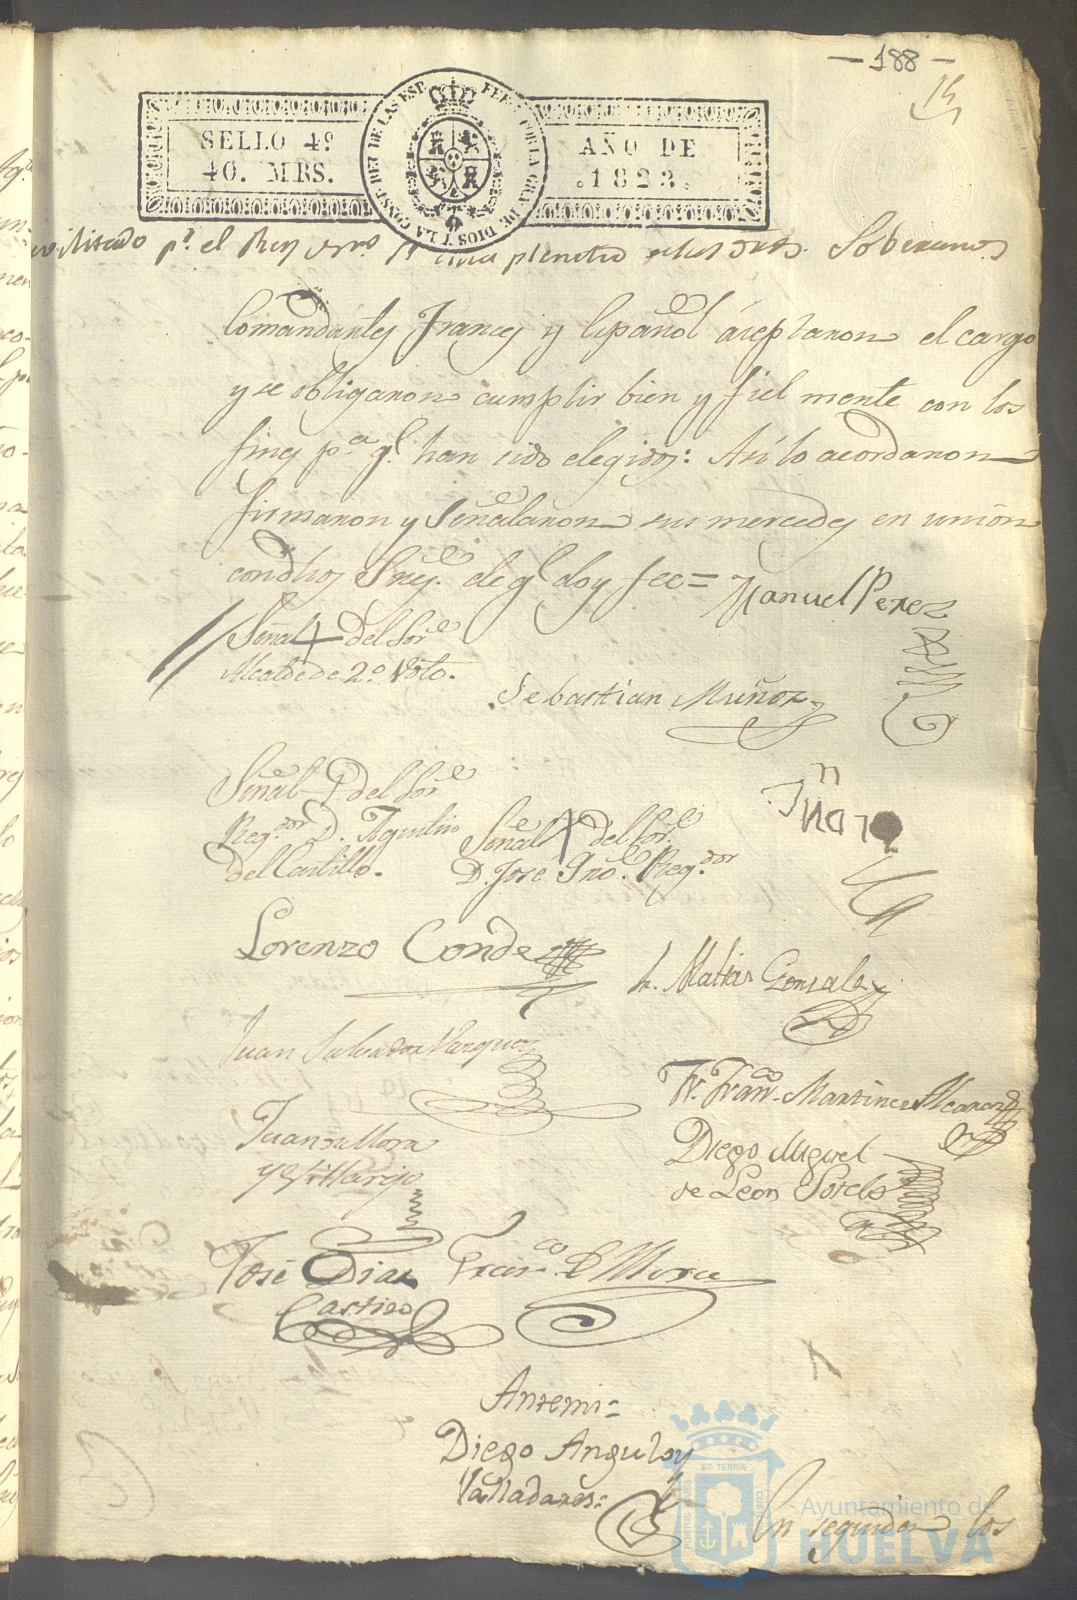 - 188 -
15
SELLO 4º
40. MRS.
AÑO DE
.1823.
FERN. POR LA GRA. DE DIOS Y LA CONST. REY DE LAS ESP.
avilitado pr. el Rey nro. Sr. Soberano
Comandantes Frances y Español áceptaron el cargo
y se obligaron cumplir bien y fiel mente con los
fines pa. qe. han sido elegidos: Así lo acordaron
firmaron y Señalaron sus mercedes en union
con dhos Sres. de qe. doy fee=
Manuel Perez
Señal + del Sore.
Alcalde de 2º. Voto.
Sebastian Muñoz
Señal del Sore.
Regdor. D. Agustin
del Castillo.
Señal + del Sore.
D. Jose Gno. Regdor.
Lorenzo Conde
Matias Gonzalez
Juan Salvador Vazquez
Fr. Franco. Martinez Alcaraz
Juan de Mora
y Villarejo
Diego Miguel
de Leon Sotelo
José Diaz
Castizo
Franco. de Mora
Antemi=
Diego Angulo y
Valladares=
En seguida los
ET TERRAE
PORTUS MARIS
CUSTODIA
Ayuntamiento de
HUELVA